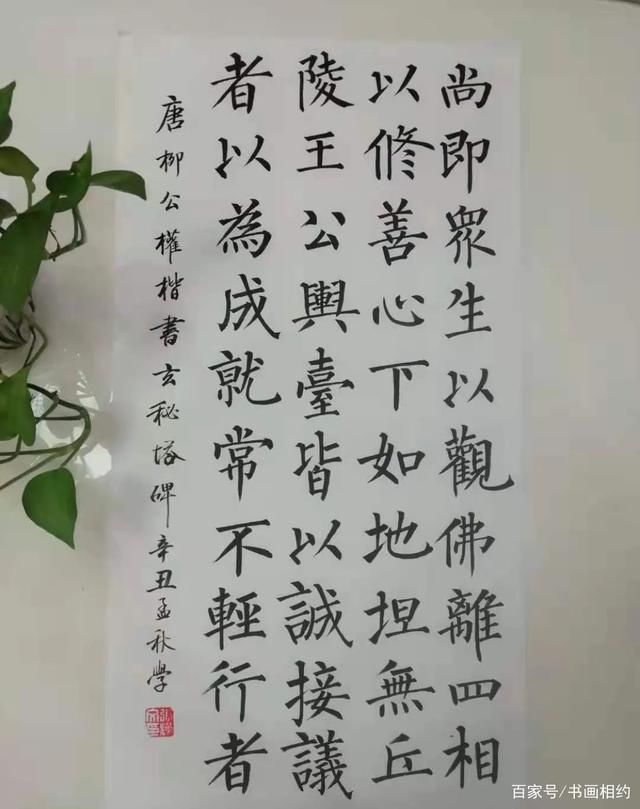 尚即眾生以觀佛離四相
以修善心下如地坦無丘
陵王公輿臺皆以誠接議
者以為成就常不輕行者
唐柳公權楷書玄秘塔碑辛丑孟秋學
百家号/书画相约